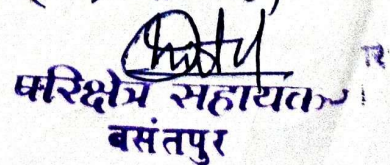 परिक्षेत्र सहायक
बसंतपुर